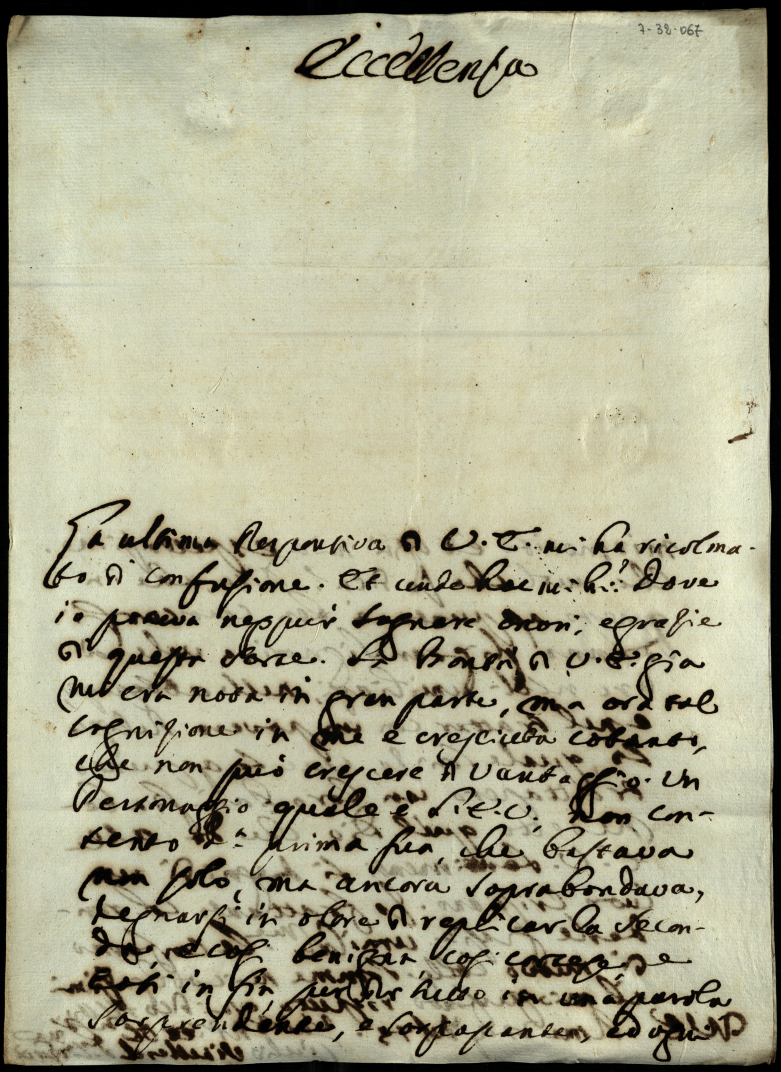 7-32-067
Eccellenza
La ultima Responsiva di V. E. mi ha ricolma-
to di confusione. Et unde hoc mihi? Dove
io poteva neppur sognare onori, e grazie
di questa sorte. La Bontà di V. E. già
mi era nota in gran parte, ma ora tal
cognizione in me è cresciuta cotanto,
che non può crescere di vantaggio. Un
Personaggio quale è V. E. non con-
tento d.a prima sua, che bastava
non solo, ma ancora soprabondava,
degnarsi in oltre di replicar la secon-
da, e così benigna così cortese, e
in fin per dir tutto in una parola
sorprendente, e sorpassante, ed ogni